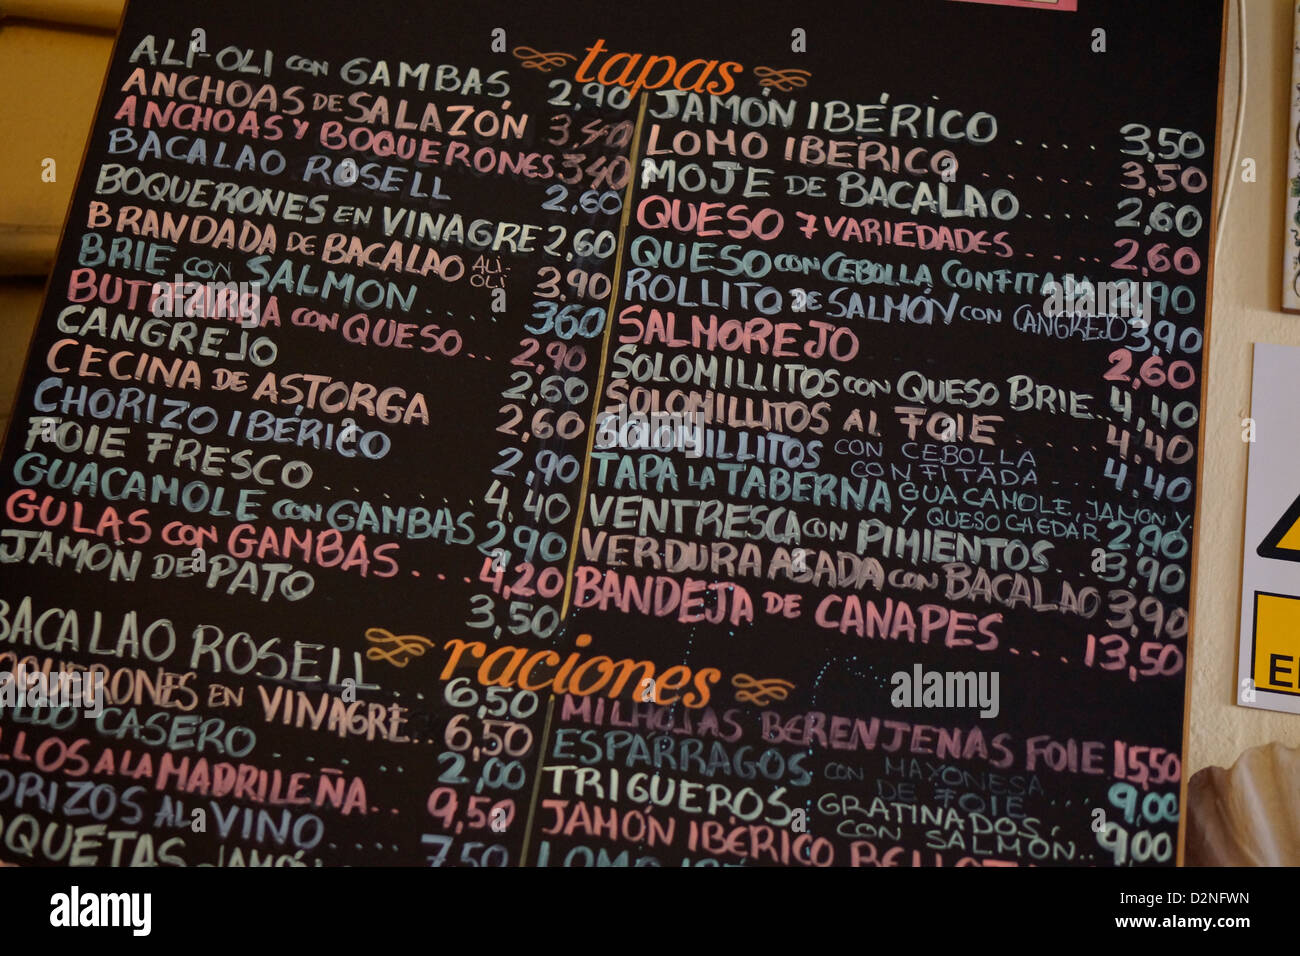 tapas
ALÍ-OLI CON GAMBAS 2,90
ANCHOAS DE SALAZÓN 3,40
ANCHOAS Y BOQUERONES 3,40
BACALAO ROSELL 2,60
BOQUERONES EN VINAGRE 2,60
BRANDADA DE BACALAO ALI-OLI 3,90
BRIE CON SALMON.... 3,60
BUTIFARRA CON QUESO.. 2,90
CANGREJO 2,60
CECINA DE ASTORGA 2,60
CHORIZO IBÉRICO 2,90
FOIE FRESCO........ 4.40
GUACAMOLE CON GAMBAS 2,90
GULAS CON GAMBAS... 4,20
JAMÓN DE PATO 3,50
JAMÓN IBÉRICO .... 3,50
LOMO IBÉRICO ...... 3,50
MOJE DE BACALAO.... 2,60
QUESO 7 VARIEDADES... 2,60
QUESO CON CEBOLLA CONFITADA 2,90
ROLLITO DE SALMÓN CON CANGREJO 3,90
SALMOREJO 2,60
SOLOMILLITOS CON QUESO BRIE.. 4,40
SOLOMILLITOS AL FOIE .... 4.40
SOLOMILLITOS CON CEBOLLA CONFITADA . 4.40
TAPA LA TABERNA GUACAMOLE, JAMÓN Y
Y QUESO CHEDAR 2,90
VENTRESCA CON PIMIENTOS... 3,90
VERDURA ASADA CON BACALAO 3,90
BANDEJA DE CANAPES.... 13,50
raciones
BACALAO ROSELL.. 6,50
OQUERONES EN VINAGRE.. 6,50
LDO CASERO ...... 2,00
LLOS A LA MADRILEÑA.. 9,50
ORIZOS AL VINO 7,50
OQUETAS JAMÓ
MILHOJAS BERENJENAS FOIE 15,50
ESPÁRRAGOS CON MAYONESA DE FOIE .... 9,00
TRIGUEROS GRATINADOS CON SALMÓN.. 9,00
JAMÓN IBÉRICO BELLOT
LOMO IBÉ
E
alamy
Image ID: D2NFWN
www.alamy.com